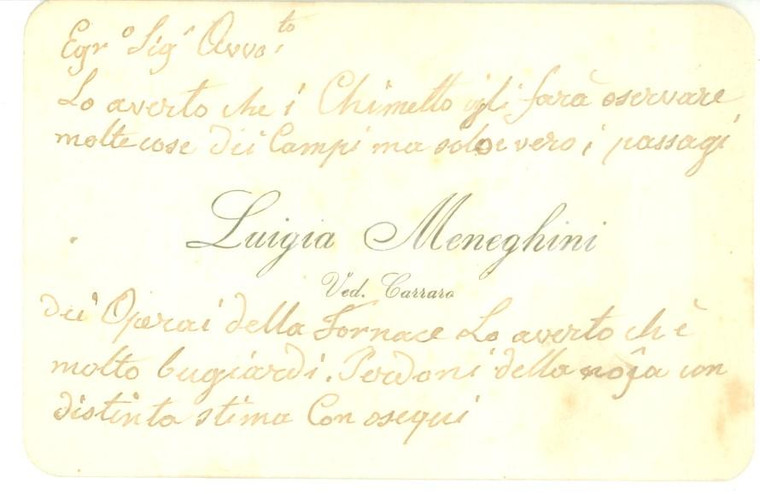 Egr.o Sigr Avvo.to
Lo averto che i Chimetto gli farà oservare
molte cose dei Campi ma solo e vero i passagi
Luigia Meneghini
Ved. Carraro
dei Operai della Fornace Lo averto che è
molto bugiardi. Perdoni della noja con
distinta stima Con osequi